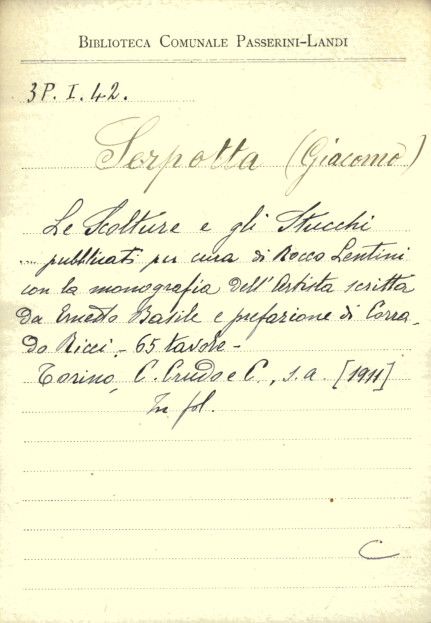 BIBLIOTECA COMUNALE PASSERINI-LANDI
3P. I. 42.
Serpotta (Giacomo)
Le Scolture e gli Stucchi
.... pubblicati per cura di Rocco Lentini
con la monografia dell'Artista scritta
da Ernesto Basile e prefazione di Corra-
do Ricci - 65 tavole -
Torino, C. Crudo e C., s.a. [1911]
In fol.
C